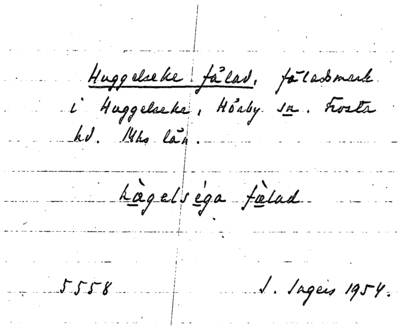 Huggelseke fälad, fäladsmark
i Huggelseke, Hörby sn. Frosta
hd. Mhs län.
hägelséga fälad
5558
S. Ingers 1954.